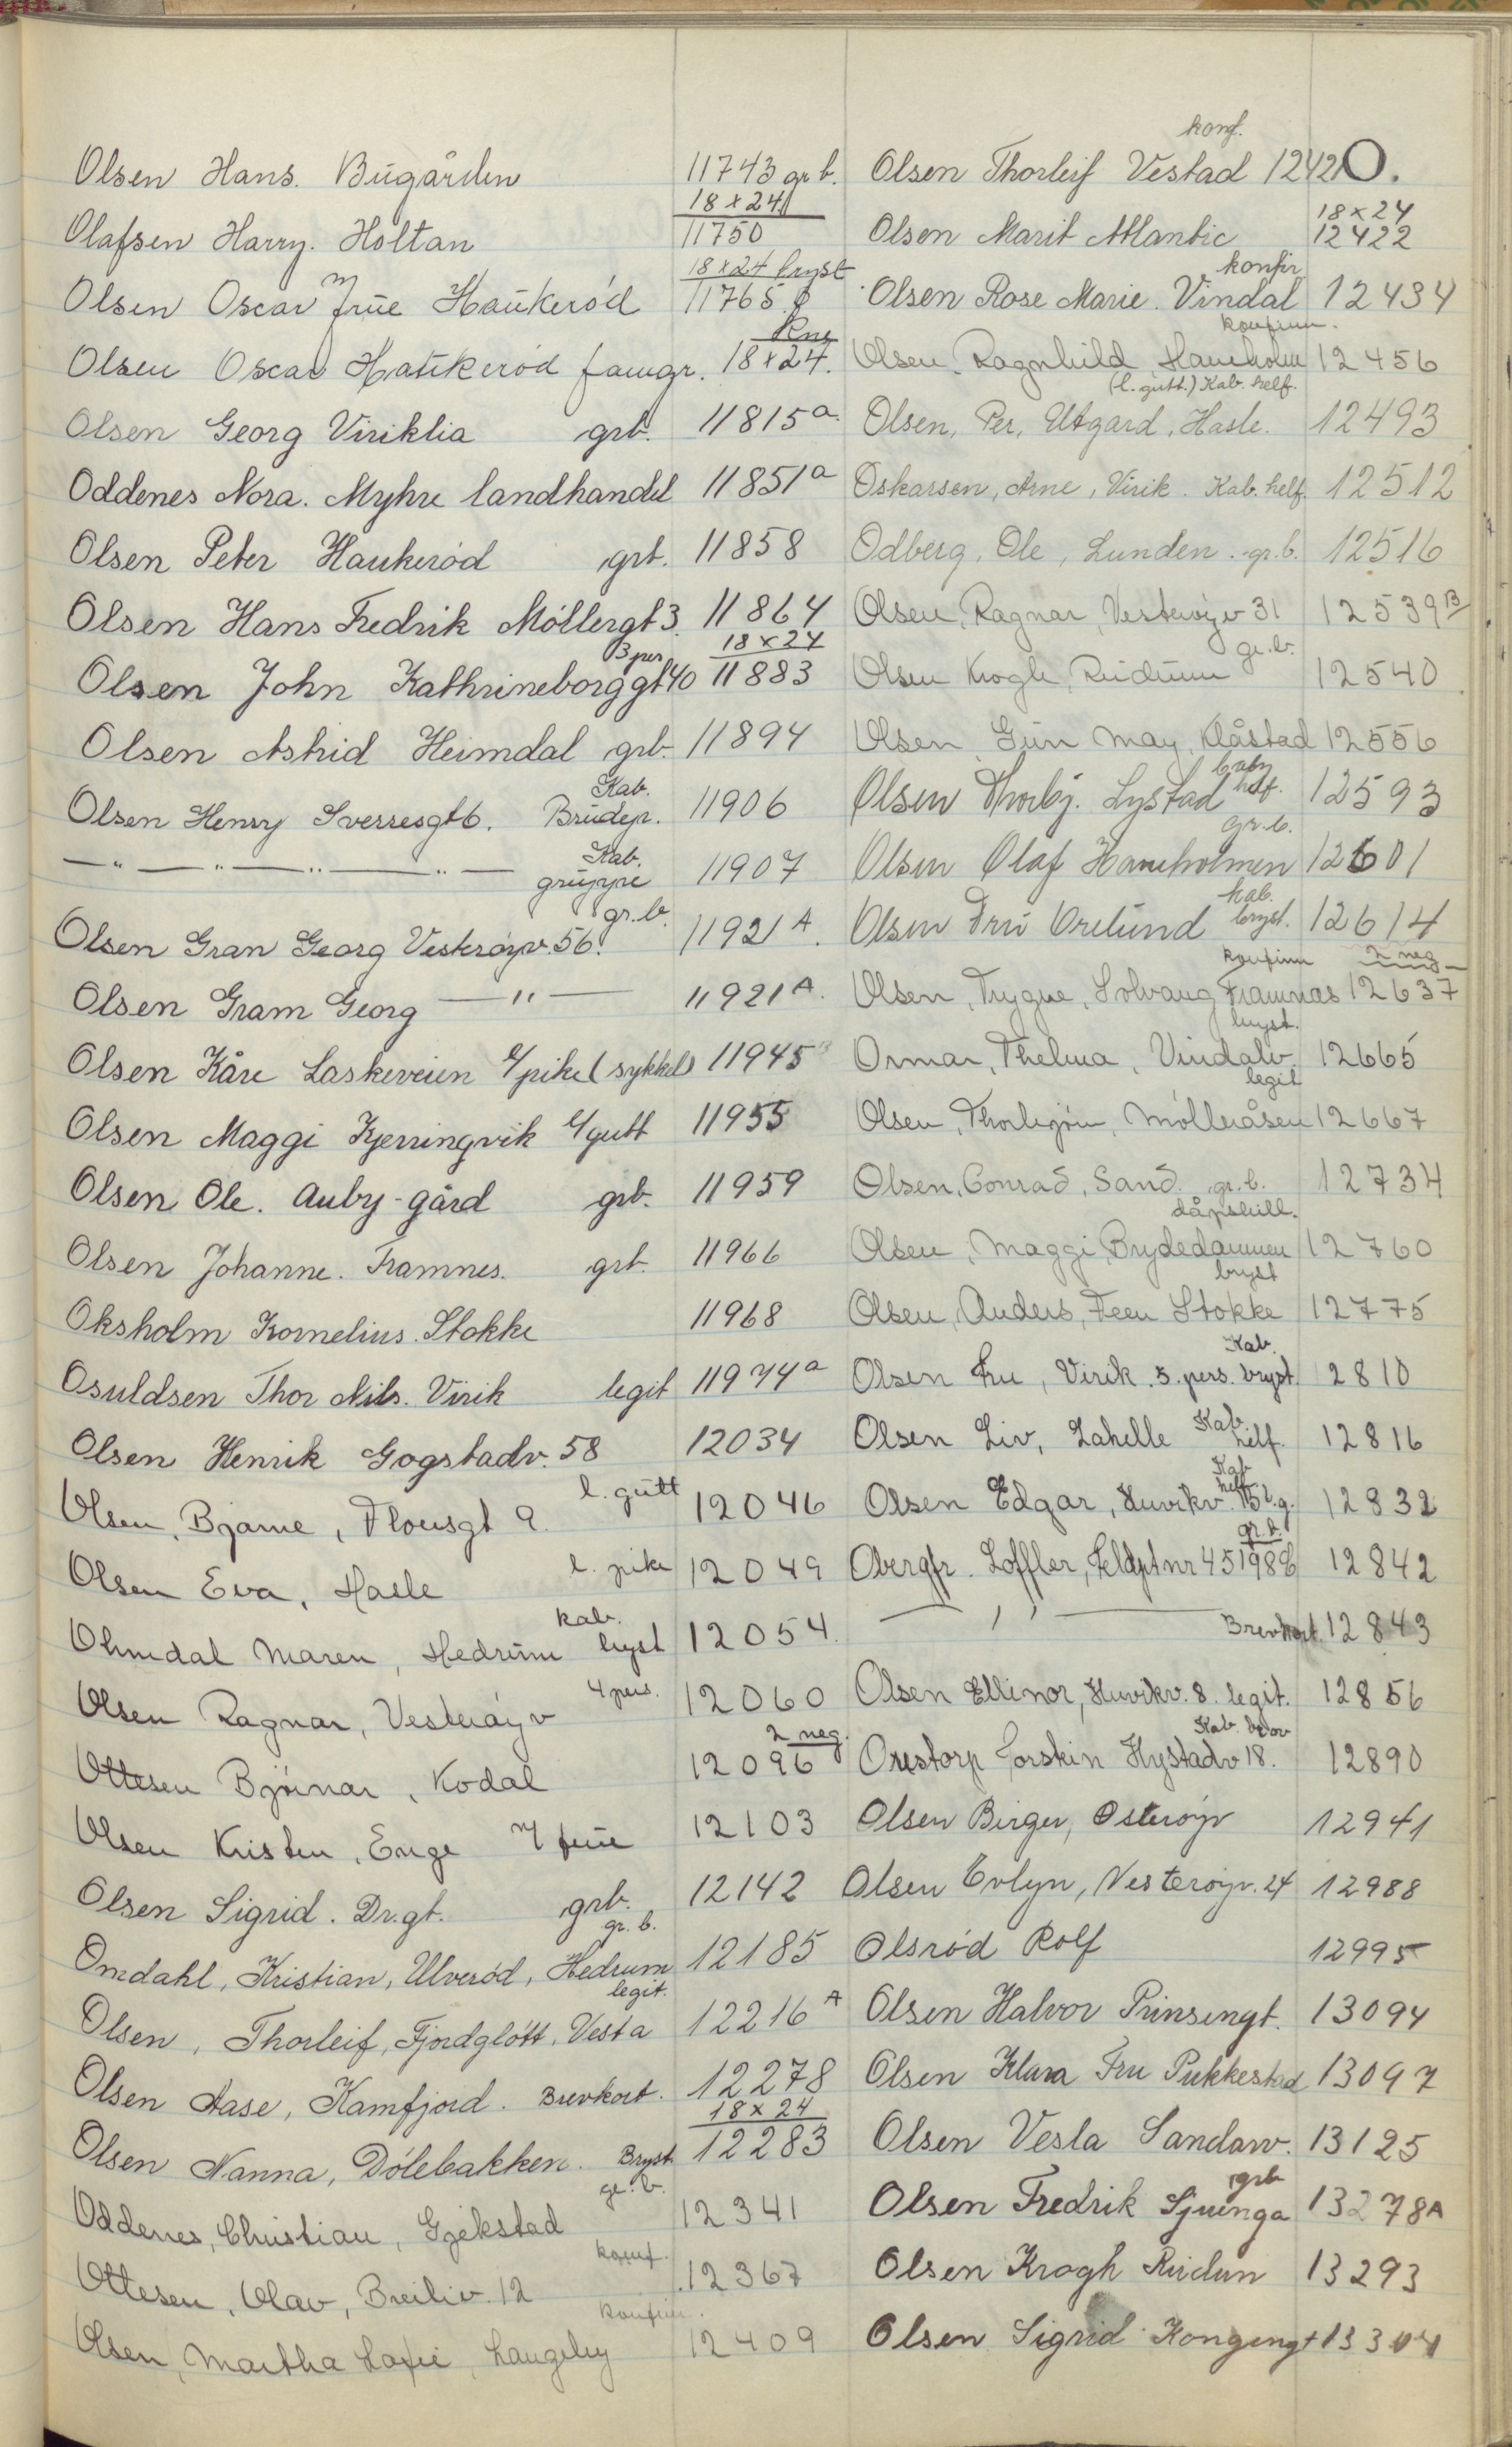 Olsen Hans. Bugården 11743 gr b.
18 x 24
Olafsen Harry. Holtan 11750
18 x 24 bryst
Olsen Oscar m/ frue Haukerød 11765
Kne
Olsen Oscar Haukerød famgr. 18 x 24.
Olsen Georg Viriklia grb. 11815 a.
Oddenes Nora. Myhre landhandel 11851 a
Olsen Peter Haukerød grb. 11858
Olsen Hans Fredrik Møllergt 3. 11864
3 per 18 x 24
Olsen John Kathrineborggt 40 11883
Olsen Astrid Heimdal grb. 11894
Kab.
Olsen Henry Sverresgt 6. Brudep. 11906
Kab.
— " — " — " — " — gruppe 11907
gr. b.
Olsen Gran Georg Vesterøyv. 56. 11921 A.
Olsen Gram Georg — " — 11921 A.
Olsen Kåre Laskeveien l/pike (sykkel) 11945 B
Olsen Maggi Kjerringvik l/gutt 11955
Olsen Ole. Auby-gård grb. 11959
Olsen Johanne. Framnes. grb. 11966
Oksholm Kornelius. Stokke 11968
Osuldsen Thor Nils. Virik legit 11974 a
Olsen Henrik Gogstadv. 58 12034
l. gutt
Olsen, Bjarne, Flonsgt 9. 12046
Olsen Eva, Hasle l. pike 12049
kab.
Olmdal Maren, Hedrum bryst 12054.
4 pers.
Olsen Ragnar, Vesterøyv 12060
2 neg.
Ottesen Bjørnar, Kodal 12096
Olsen Kristen, Enge m/ frue 12103
Olsen Sigrid. Dr.gt. grb. 12142
gr. b.
Omdahl, Kristian, Ulverød, Hedrum 12185
legit.
Olsen, Thorleif, Fjordgløtt, Vesta 12216 A
Olsen Aase, Kamfjord. Brevkort. 12278
18 x 24
Olsen Nanna, Dølebakken. Bryst 12283
gr. b.
Oddenes, Christian, Gjekstad 12341
konf.
Ottesen, Olav, Breiliv. 12 12367
konfir.
Olsen, Martha Sofie, Langeby 12409
konf.
Olsen Thorleif Vestad 12421
O.
18 x 24
Olsen Marit Atlantic 12422
konfir.
Olsen Rose Marie. Vindal 12434
konfirm.
Olsen, Ragnhild, Haneholm 12456
(l. gutt.) Kab. helf.
Olsen, Per, Utgard, Hasle. 12493
Oskarsen, Arne, Virik. Kab. helf. 12512
Odberg, Ole, Lunden. gr. b. 12516
Olsen, Ragnar, Vesterøyv 31 12539 B
gr. b.
Olsen Krogh, Ruidum 12540
Olsen Gun May, Klåstad 12556
baby
Olsen Thorbj. Lystad helf. 12593
gr. b.
Olsen Olaf Haneholmen 12601
kab.
Olsen Fru Orelund bryst. 12614
konfirm 2 neg
Olsen, Trygve, Solvang Framnæs 12637
bryst.
Ormar, Thelma, Vindalv. 12665
legit
Olsen, Thorbjørn, Mølleråsen 12667
Olsen, Conrad, Sand. gr. b. 12734
dåpsbill.
Olsen, Maggi, Brydedammen 12760
bryst
Olsen, Anders, Feen Stokke 12775
Kab.
Olsen Fru, Virik. 5. pers. bryst. 12810
Kab.
Olsen Liv, Zahelle helf. 12816
Kab
helf.
Olsen Edgar, Huvikv. 15 l. g. 12832
gr. b.
Obergfr. Loffler, Feldptnr 45198 E 12842
— " — Brevkort. 12843
Olsen Ellinor, Huvikv. 8. legit. 12856
Kab.
Orestorp Torstein Hystadv 18. 12890
Olsen Birger, Østerøyv 12941
Olsen Evlyn, Vesterøyv. 24 12988
Olsrød Rolf 12995
Olsen Halvor Prinsengt. 13094
Olsen Klara Fru Pukkestad 13097
Olsen Vesla Sandarv. 13125
grb
Olsen Fredrik Sjuenga 13278 A
Olsen Krogh Ruidun 13293
Olsen Sigrid Kongengt 13304